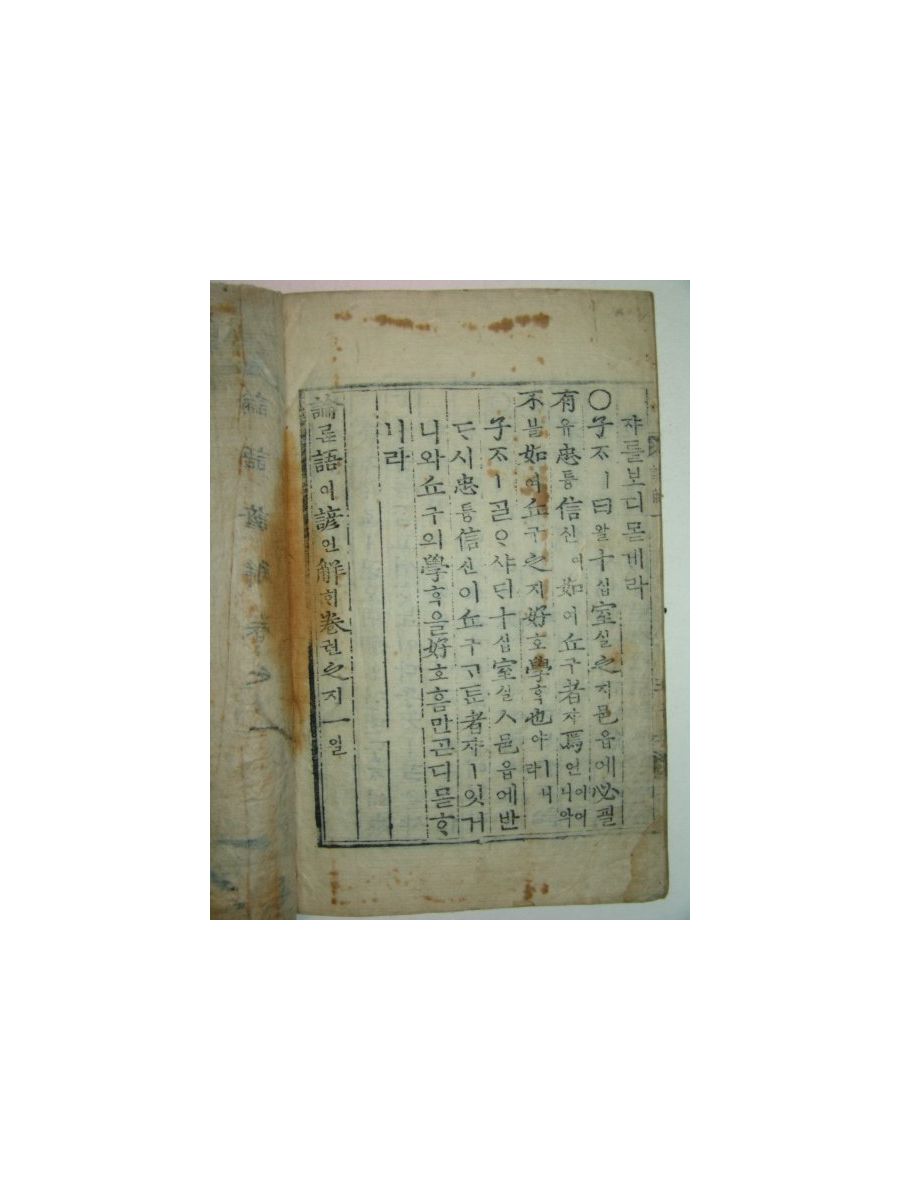 쟈를보디몯게라
○子ᄌᆞㅣ曰왈十십室실之지邑읍에必필
有유忠튱信신이如여丘구者쟈焉언이어니와
不블如여丘구之지好호學ᄒᆞᆨ也야ㅣ니라
子ᄌᆞㅣᄀᆞᆯᄋᆞ샤ᄃᆡ十십室실人邑읍에반
ᄃᆞ시忠튱信신이丘구ᄀᆞᄐᆞᆫ者쟈ㅣ잇거
니와丘구의學ᄒᆞᆨ을好호홈만ᄀᆞᆮ디몯ᄒᆞ
니라
論론語어諺언解ᄒᆡ卷권之지一일
論語諺解卷之